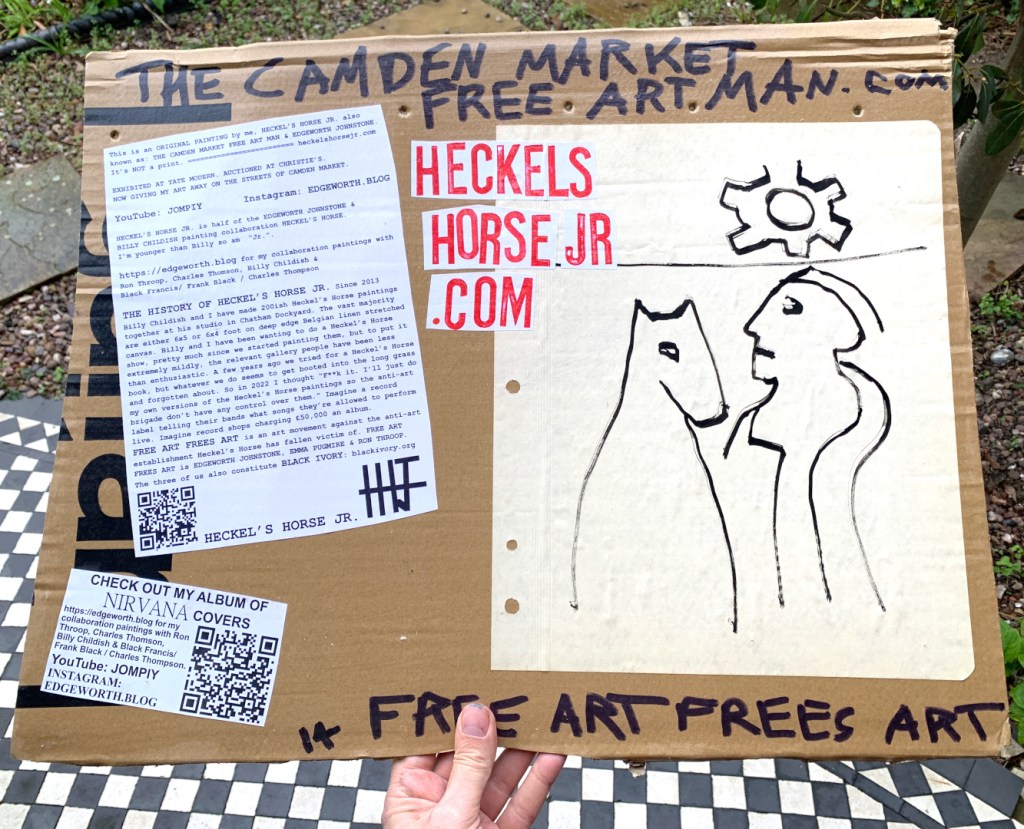 THE CAMDEN MARKET
FREE ART MAN.COM
This is an ORIGINAL PAINTING by me, HECKEL'S HORSE JR. also
known as: THE CAMDEN MARKET FREE ART MAN & EDGEWORTH JOHNSTONE.
It's NOT a print. ======================== heckelshorsejr.com
EXHIBITED AT TATE MODERN. AUCTIONED AT CHRISTIE'S.
NOW GIVING MY ART AWAY ON THE STREETS OF CAMDEN MARKET.
YouTube: JOMPIY Instagram: EDGEWORTH.BLOG
HECKEL'S HORSE JR. is half of the EDGEWORTH JOHNSTONE &
BILLY CHILDISH painting collaboration HECKEL'S HORSE.
I'm younger than Billy so am "Jr.".
https://edgeworth.blog for my collaboration paintings with
Ron Throop, Charles Thomson, Billy Childish &
Black Francis/ Frank Black / Charles Thompson
THE HISTORY OF HECKEL'S HORSE JR. Since 2013
Billy Childish and I have made 200ish Heckel's Horse paintings
together at his studio in Chatham Dockyard. The vast majority
are either 6x5 or 6x4 foot on deep edge Belgian linen stretched
canvas. Billy and I have been wanting to do a Heckel's Horse
show, pretty much since we started painting them, but to put it
extremely mildly, the relevant gallery people have been less
than enthusiastic. A few years ago we tried for a Heckel's Horse
book, but whatever we do seems to get booted into the long grass
and forgotten about. So in 2022 I thought "F**k it. I'll just do
my own versions of the Heckel's Horse paintings so the anti-art
brigade don't have any control over them." Imagine a record
label telling their bands what songs they're allowed to perform
live. Imagine record shops charging £50,000 an album.
FREE ART FREES ART is an art movement against the anti-art
establishment Heckel's Horse has fallen victim of. FREE ART
FREES ART is EDGEWORTH JOHNSTONE, EMMA PUGMIRE & RON THROOP.
The three of us also constitute BLACK IVORY: blackivory.org
HECKEL'S HORSE JR.
HECKELS
HORSE JR
.COM
CHECK OUT MY ALBUM OF
NIRVANA COVERS
https://edgeworth.blog for my
collaboration paintings with Ron
Throop, Charles Thomson,
Billy Childish & Black Francis/
Frank Black / Charles Thompson.
YouTube: JOMPIY
INSTAGRAM:
EDGEWORTH.BLOG
14 FREE ART FREES ART